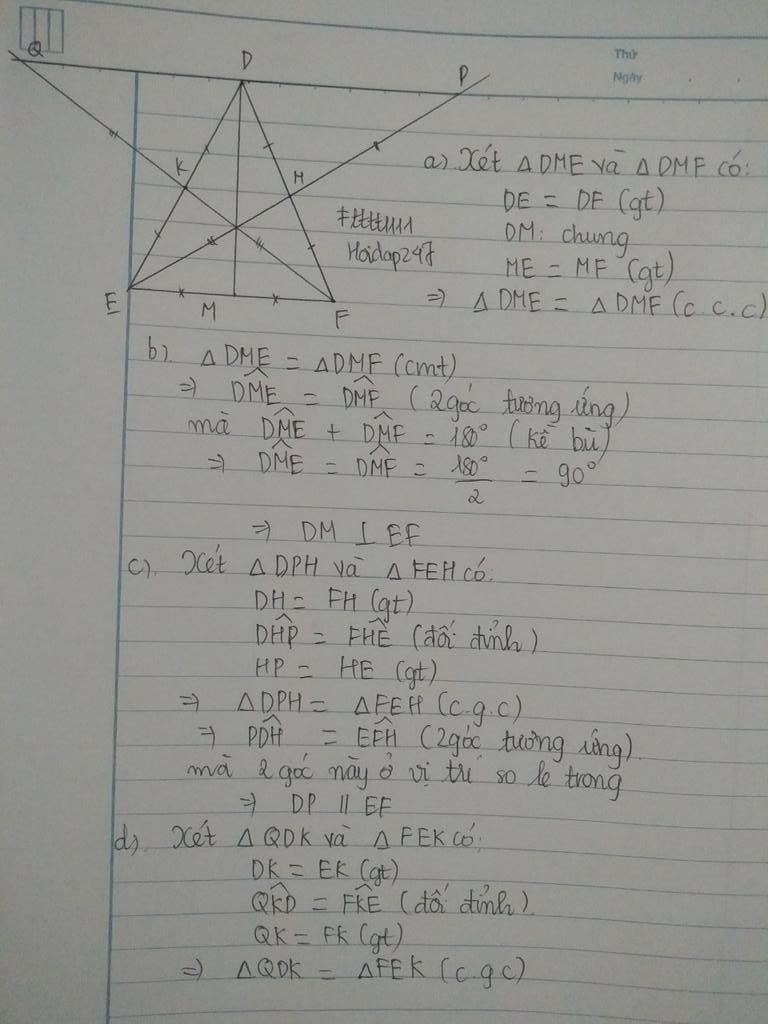 Q
D
P
K
H
E
M
F
Thứ
Ngày
Hoidap247
a) Xét ΔDME và ΔDMF có:
DE = DF (gt)
DM: chung
ME = MF (gt)
=> ΔDME = ΔDMF (c.c.c)
b). ΔDME = ΔDMF (cmt)
=> DM̂E = DM̂F (2 góc tương ứng)
mà DM̂E + DM̂F = 180° (kề bù)
=> DM̂E = DM̂F = 180°/2 = 90°
=> DM ⊥ EF
c). Xét ΔDPH và ΔFEH có:
DH = FH (gt)
DĤP = FĤE (đối đỉnh)
HP = HE (gt)
=> ΔDPH = ΔFEH (c.g.c)
=> PD̂H = EF̂H (2 góc tương ứng)
mà 2 góc này ở vị trí so le trong
=> DP // EF
d). Xét ΔQDK và ΔFEK có:
DK = EK (gt)
QK̂D = FK̂E (đối đỉnh).
QK = FK (gt)
=> ΔQDK = ΔFEK (c.g.c)